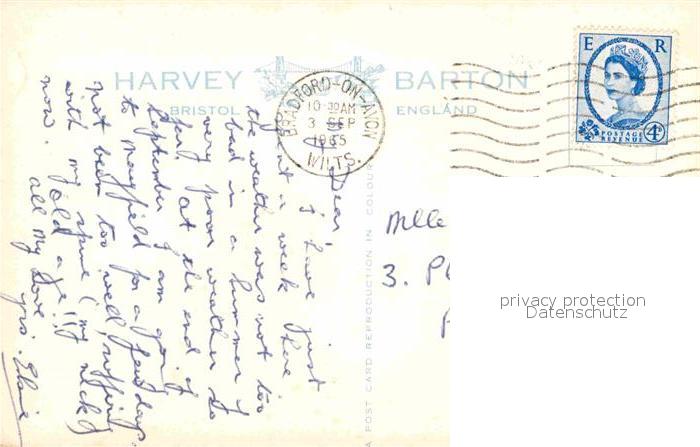 HARVEY BARTON
BRISTOL ENGLAND
BRADFORD-ON-AVON
10-30AM
3 SEP
1965
WILTS.
E R
POSTAGE
REVENUE
4D
Dear
I have just
spent a week here
the weather was not too
bad in a summer of
very poor weather so
far. at the end of
September I am going
to Mayfield for a few days.
not been too well suffering
with my spine (my neck)
old age!!
now. all my love
yrs. Elsie
Mlle
3. Pl
A POST CARD REPRODUCTION IN COLOUR
privacy protection
Datenschutz